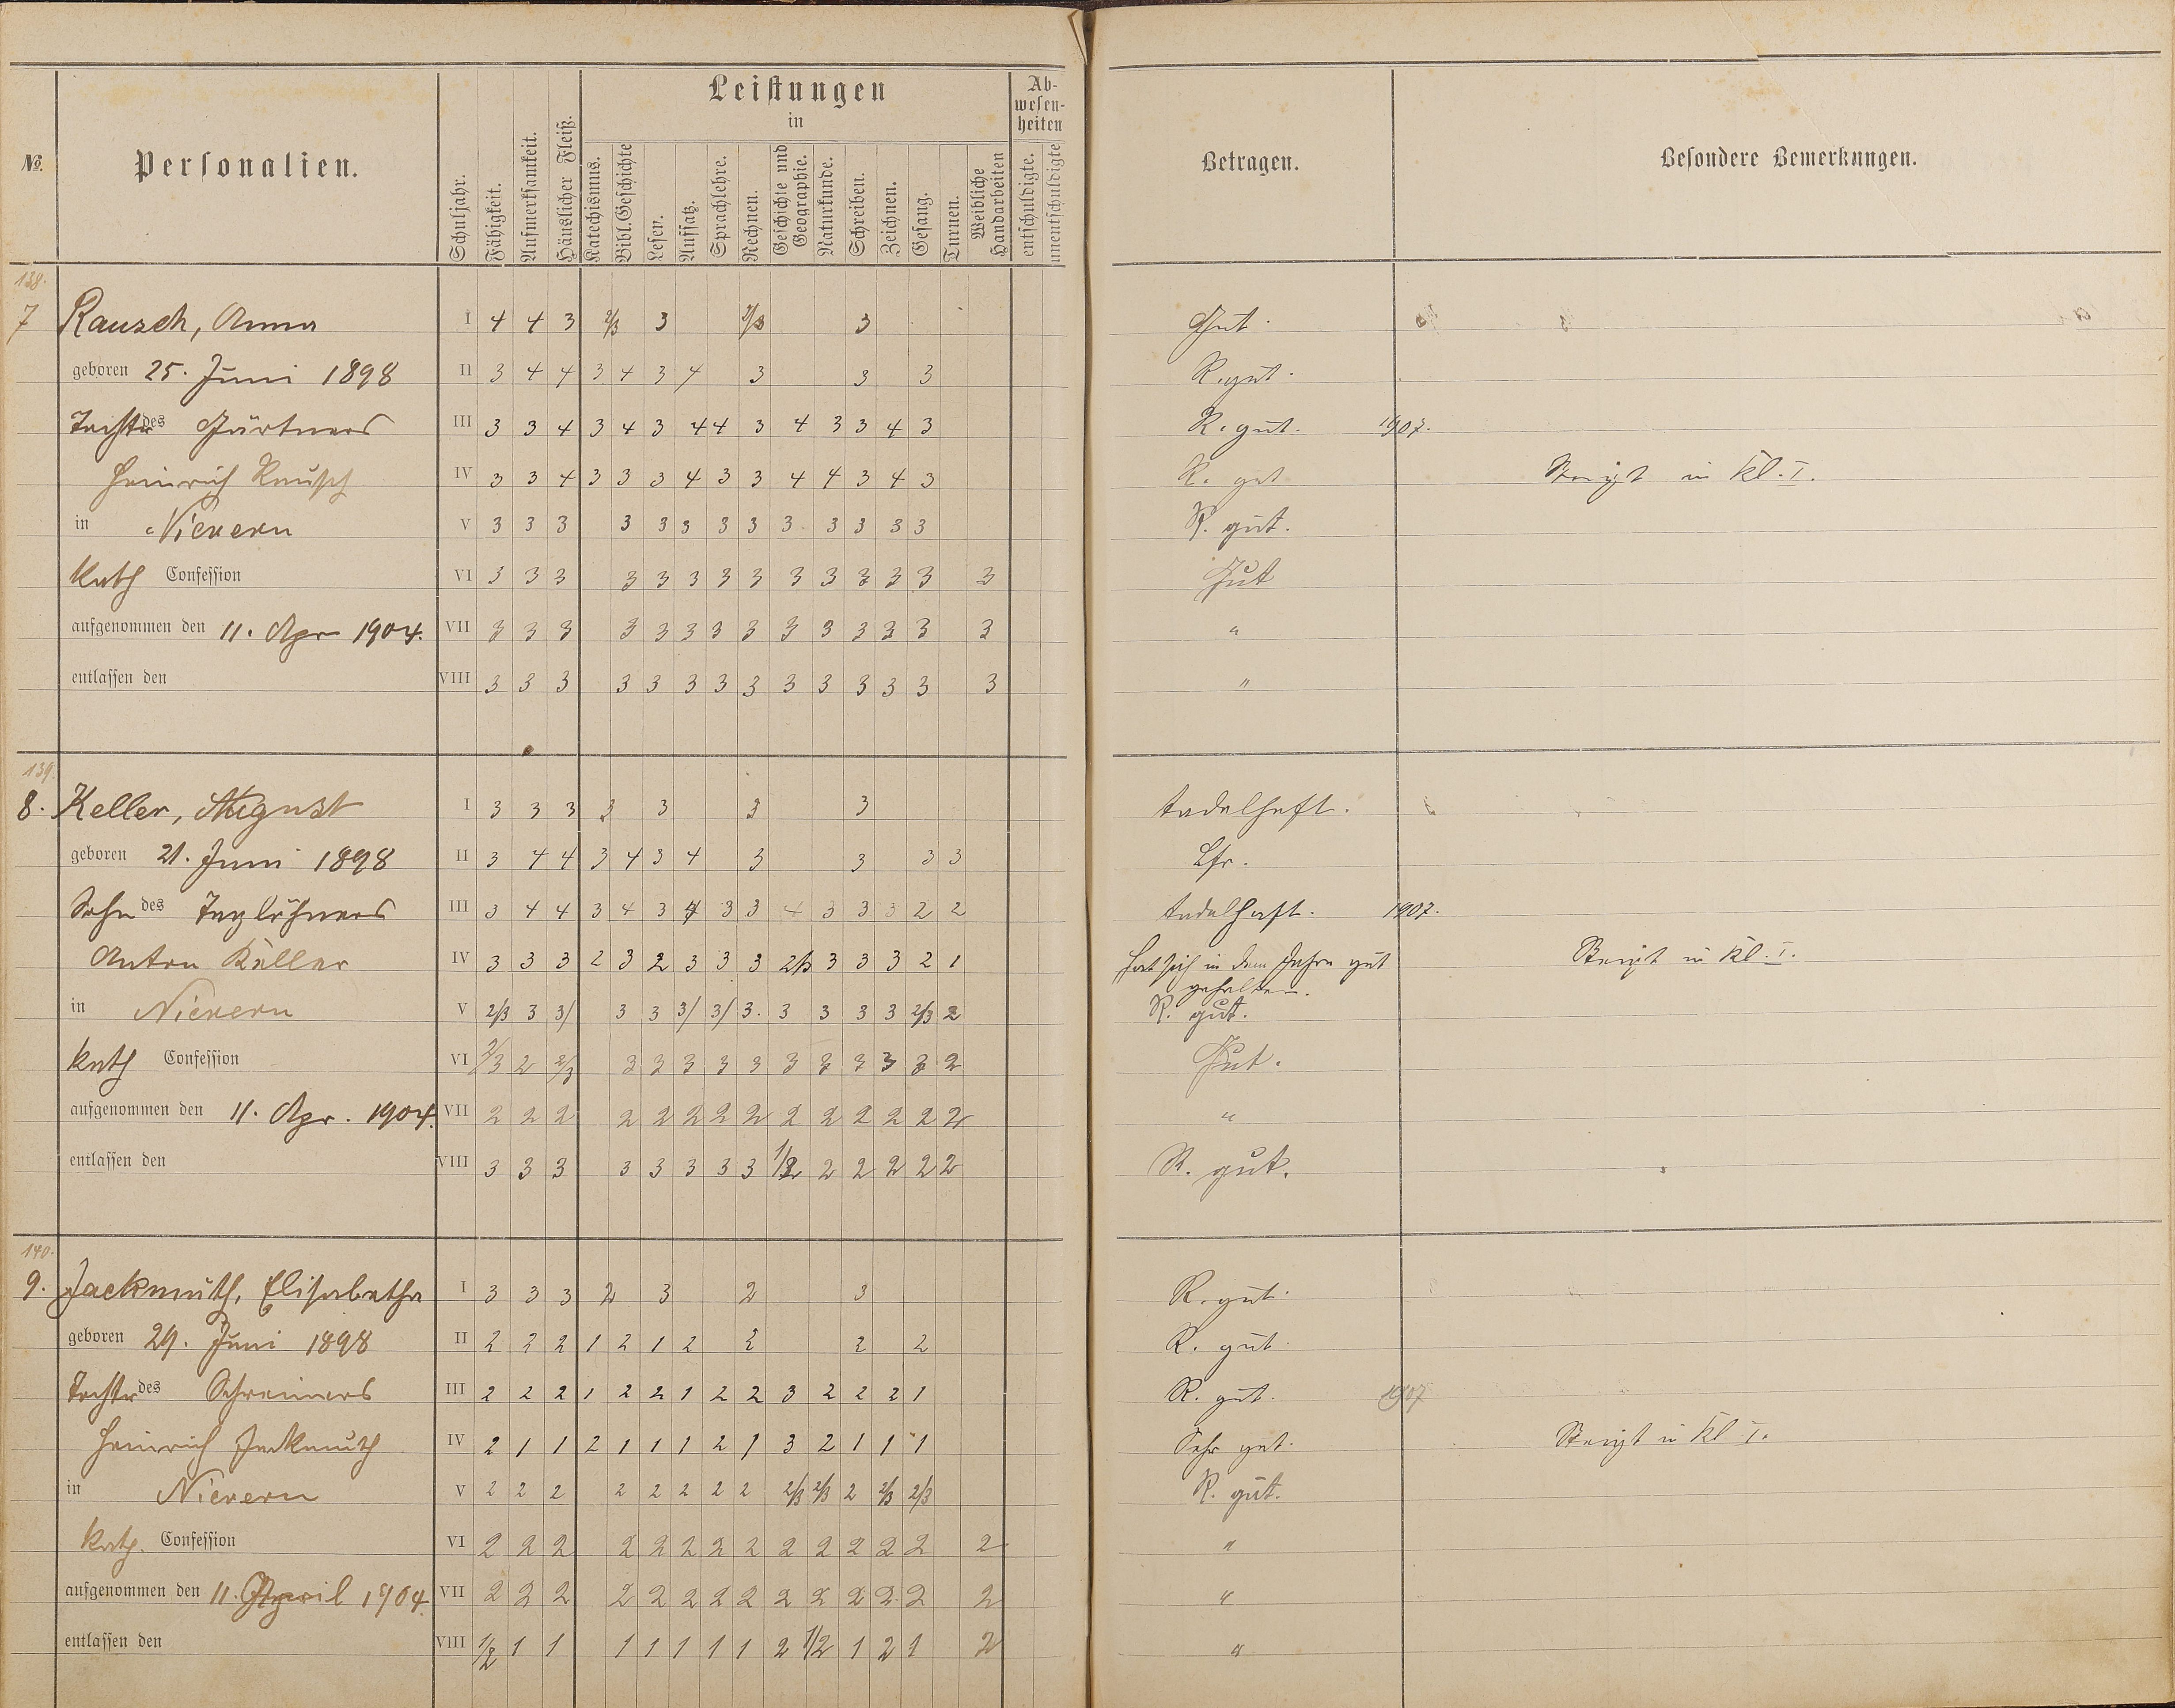 No. Personalien. Schuljahr. Fähigkeit. Aufmerksamkeit. Häuslicher Fleiß. Leistungen in Katechismus. Bibl. Geschichte Lesen. Aufsatz. Sprachlehre. Rechnen. Geschichte und Geographie. Naturkunde. Schreiben. Zeichnen. Gesang. Turnen. Weibliche Handarbeiten Abwesenheiten entschuldigte. unentschuldigte Betragen. Besondere Bemerkungen.
138.
7 Rausch, Anna I 4 4 3 2/3 3 2/3 3 Gut.
geboren 25. Juni 1898 II 3 4 4 3 4 3 4 3 3 3 R. gut.
Tochter des Gärtners III 3 3 4 3 4 3 4 4 3 4 3 3 4 3 R. gut. 1907.
Heinrich Rausch IV 3 3 4 3 3 3 4 3 3 4 4 3 4 3 R. gut Steigt in Kl. I.
in Nievern V 3 3 3 3 3 3 3 3 3 3 3 3 3 R. gut.
kath Confession VI 3 3 3 3 3 3 3 3 3 3 3 3 3 3 Gut
aufgenommen den 11. Apr 1904. VII 3 3 3 3 3 3 3 3 3 3 3 3 3 3 "
entlassen den VIII 3 3 3 3 3 3 3 3 3 3 3 3 3 3 "
139.
8. Keller, August I 3 3 3 3 3 3 3 tadelhaft.
geboren 21. Juni 1898 II 3 4 4 3 4 3 4 3 3 3 3
Sohn des Taglöhners III 3 4 4 3 4 3 4 3 3 4 3 3 3 2 2 tadelhaft. 1907.
Anton Keller IV 3 3 3 2 3 2 3 3 3 2/3 3 3 3 2 1 Hat sich in dem Jahre gut Steigt in Kl. I.
gehalten.
in Nievern V 2/3 3 3/ 3 3 3/ 3/ 3. 3 3 3 3 2/3 2 R. gut.
kath Confession VI 2/3 2 2/3 3 3 3 3 3 3 3 3 3 3 2 Gut.
aufgenommen den 11. Apr. 1904. VII 2 2 2 2 2 2 2 2 2 2 2 2 2 2 "
entlassen den VIII 3 3 3 3 3 3 3 3 1/2 2 2 2 2 2 R. gut.
140.
9. Jackmuth, Elisabetha I 3 3 3 2 3 2 3 R. gut.
geboren 29. Juni 1898 II 2 2 2 1 2 1 2 2 2 2 R. gut.
Tochter des Schreiners III 2 2 2 1 2 2 1 2 2 3 2 2 2 1 R. gut. 1907
Heinrich Jackmuth IV 2 1 1 2 1 1 1 2 1 3 2 1 1 1 Sehr gut. Steigt in Kl. I.
in Nievern V 2 2 2 2 2 2 2 2 2/3 2/3 2 2/3 2/3 R. gut.
kath. Confession VI 2 2 2 2 2 2 2 2 2 2 2 2 2 2 "
aufgenommen den 11. April 1904. VII 2 2 2 2 2 2 2 2 2 2 2 2 2 2 "
entlassen den VIII 1/2 1 1 1 1 1 1 1 2 1/2 1 2 1 2 "